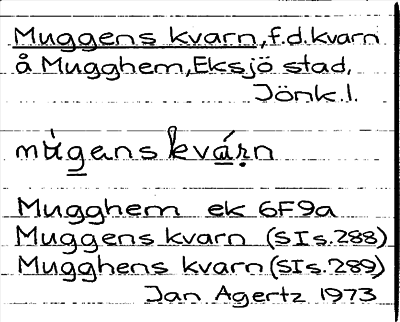 Muggens kvarn, f.d.kvarn
å Mugghem, Eksjö stad,
Jönk.l.
mùgens kvárn
Mugghem ek 6F9a
Muggens kvarn (SI s.288)
Mugghens kvarn (SI s.289)
Jan Agertz 1973